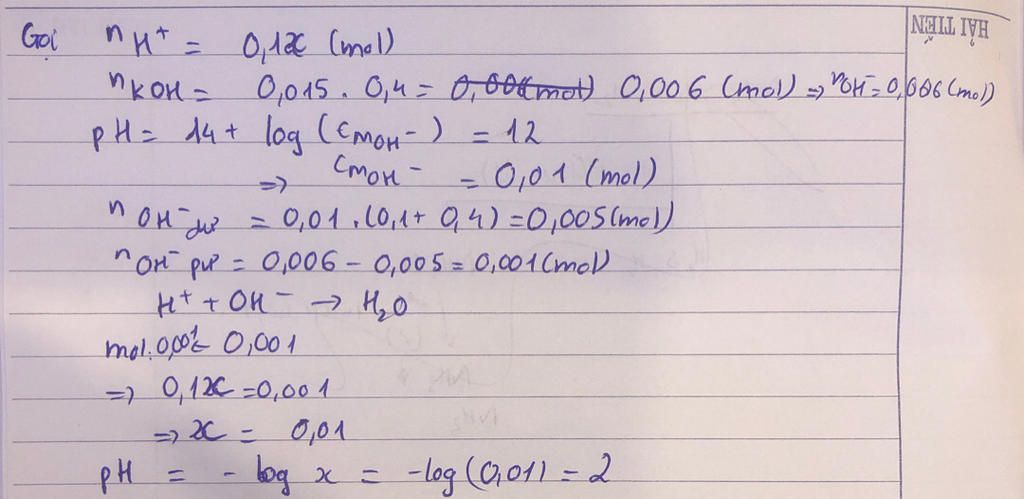 Gọi nH⁺ = 0,1x (mol)
nKOH = 0,015 . 0,4 = 0,006 (mol) ⇒ nOH⁻ = 0,006 (mol)
pH = 14 + log (CMOH⁻) = 12
⇒ CMOH⁻ = 0,01 (mol)
nOH⁻ dư = 0,01 . (0,1 + 0,4) = 0,005 (mol)
nOH⁻ pư = 0,006 - 0,005 = 0,001 (mol)
H⁺ + OH⁻ → H₂O
mol: 0,001 ← 0,001
⇒ 0,1x = 0,001
⇒ x = 0,01
pH = - log x = -log (0,01) = 2
HẢI TIẾN